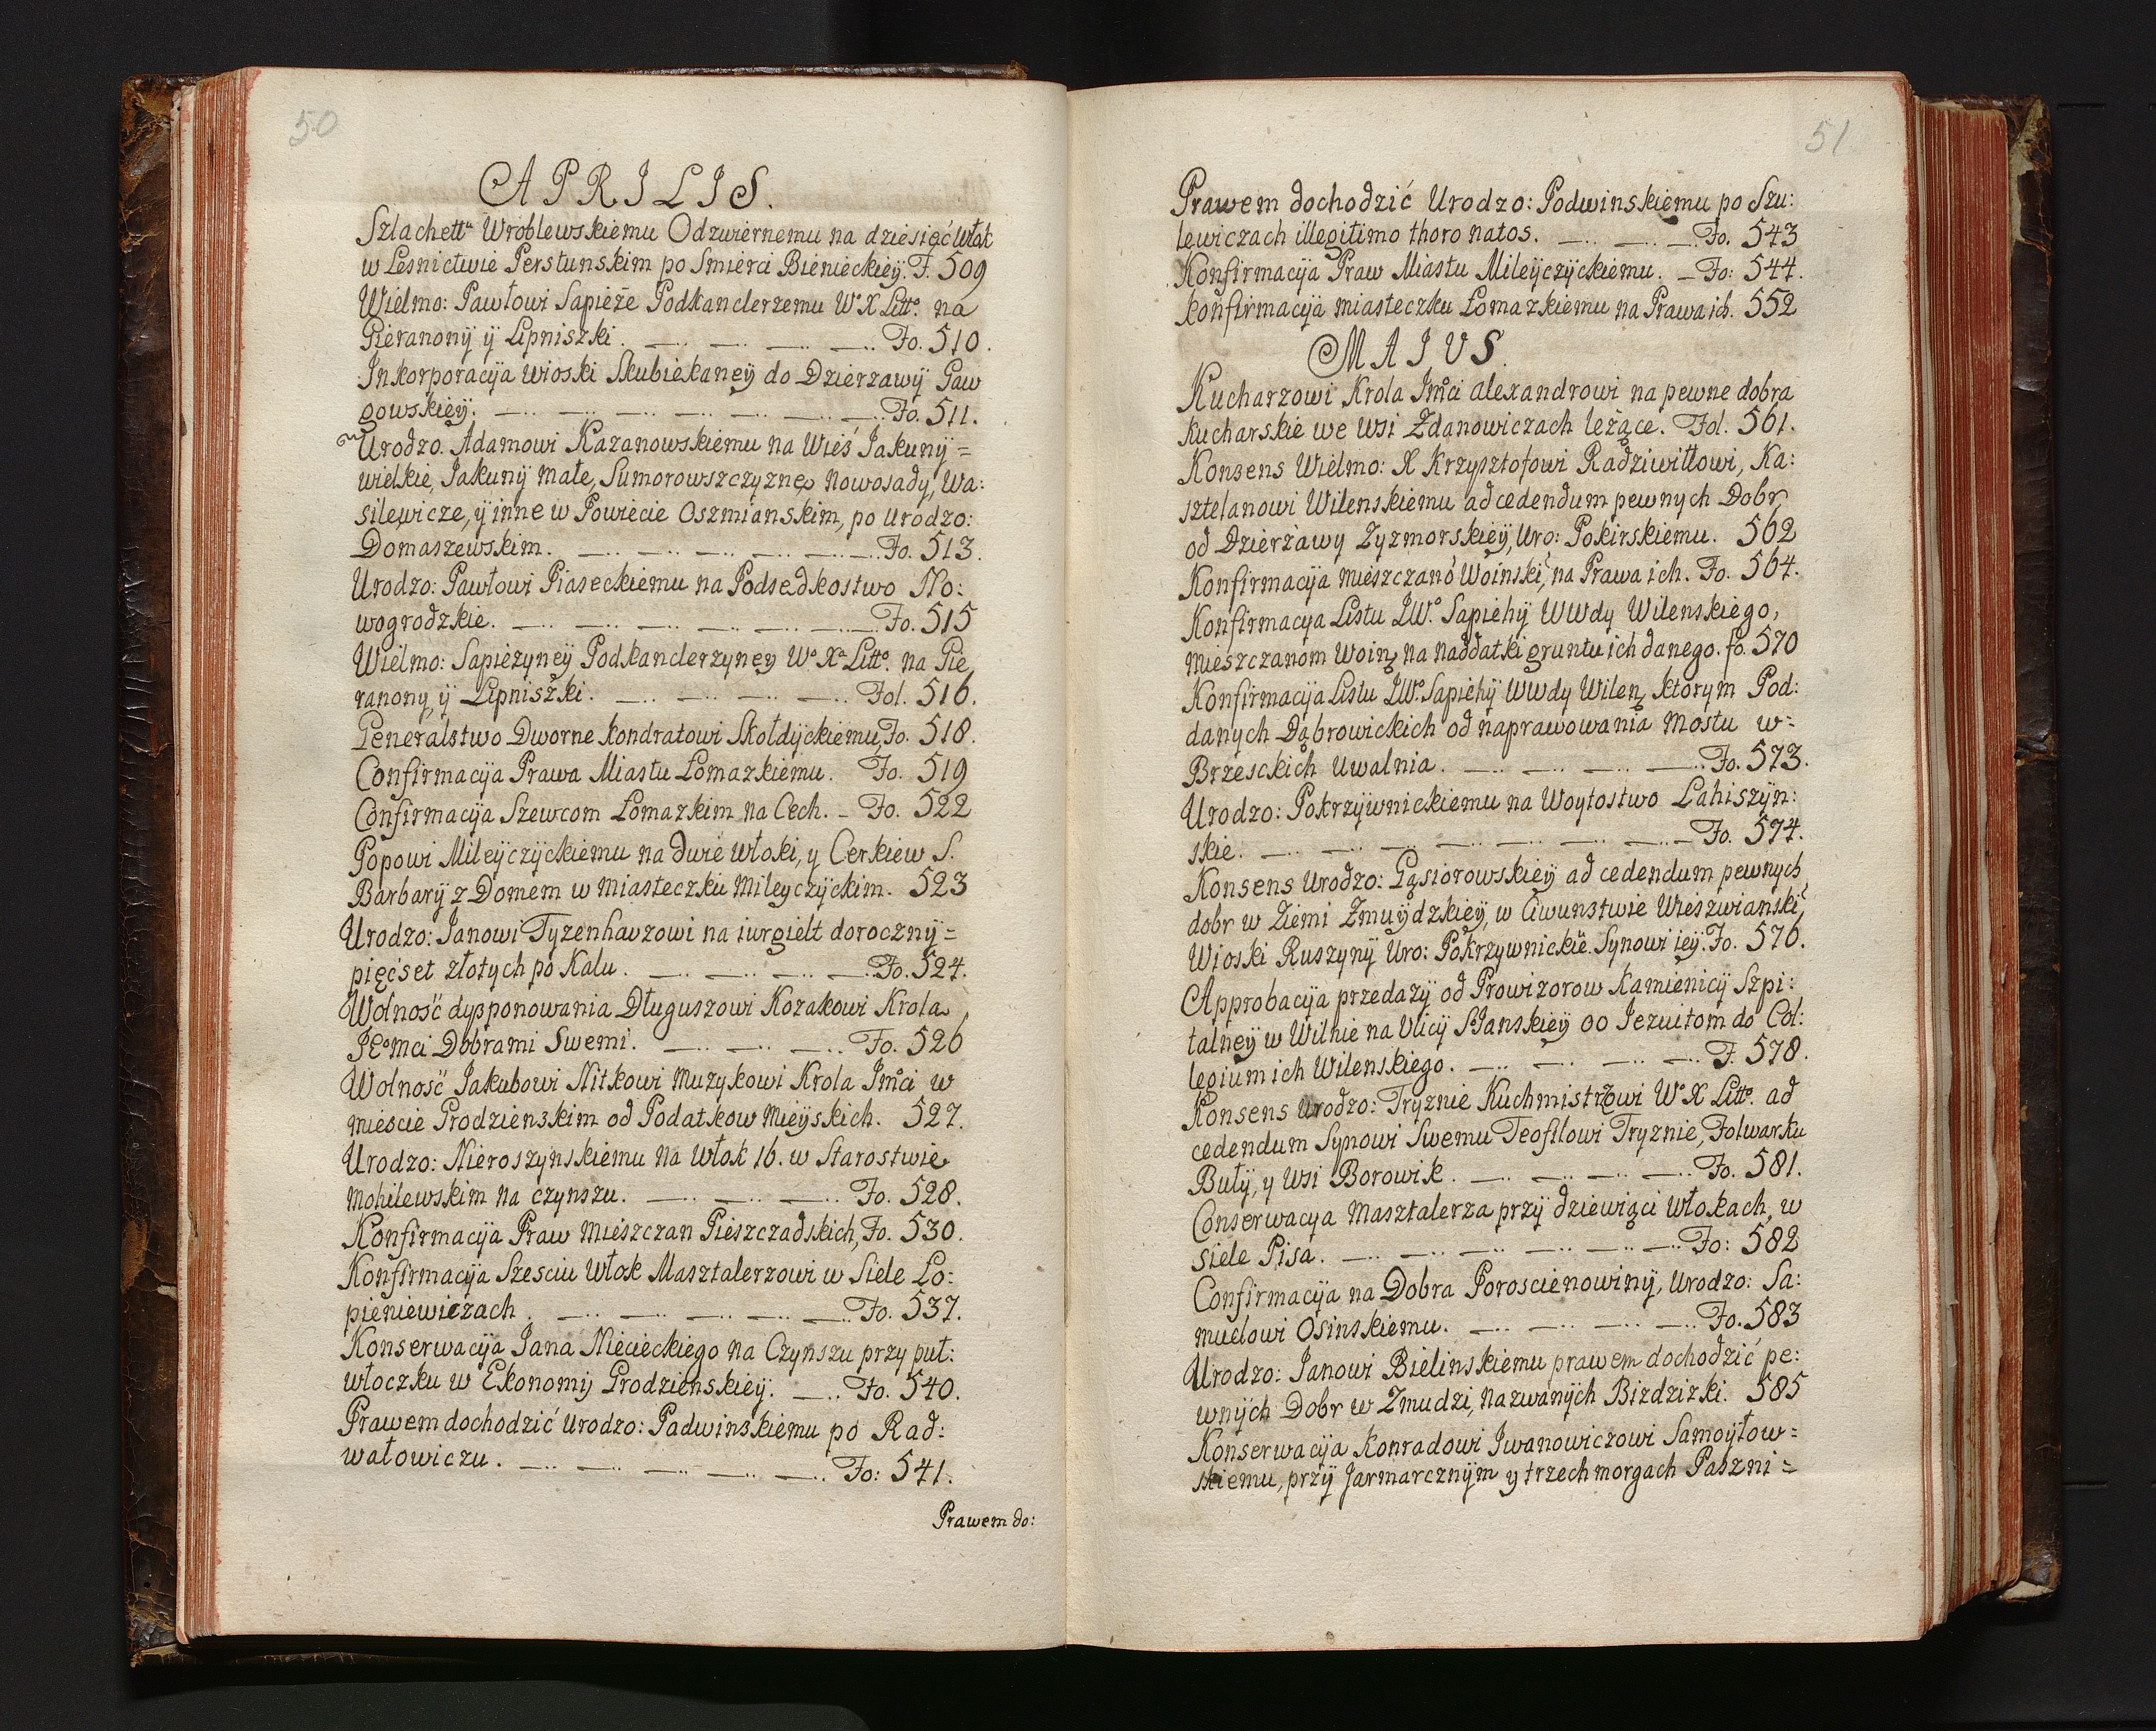 50
APRILIS.
Szlachettᵘ Wroblewskiemu Odzwiernemu na dziesięć włok
w Lesnictwie Perstunskim po Smierci Bienieckieÿ. F. 509
Wielmo: Pawłowi Sapieże Podkanclerzemu Wº X Littº. na
Pieranonÿ ÿ Lipniszki. Fo. 510.
Inkorporacÿa wioski Skubiekaneÿ do Dzierzawÿ Paw
gowskieÿ. Fo. 511.
Urodzo. Adamowi Kazanowskiemu na Wieś Jakunÿ =
wielkie, Jakunÿ małe, Sumorowszczyznę Nowosady, Wa:
silewicze, ÿ inne w Powiecie Oszmianskim, po Urodzo:
Domaszewskim. Fo. 513.
Urodzo: Pawłowi Piaseckiemu na Podsedkostwo No:
wogrodzkie. Fo. 515
Wielmo: Sapieżyneÿ Podkanclerzyney Wº Xª Littº. na Pie
ranony, ÿ Lipniszki. Fol. 516.
Generalstwo Dworne kondratowi Skołdÿckiemu, Fo. 518.
Confirmacÿa Prawa Miastu Łomazkiemu. Fo. 519
Confirmacÿa Szewcom Łomazkim na Cech. Fo. 522
Popowi Mileÿczÿckiemu na dwie włoki, y Cerkiew S.
Barbarÿ z Domem w miasteczku Mileyczÿckim. 523
Urodzo: Janowi Tyzenhauzowi na iurgielt dorocznÿ =
pięćset złotych po Kalu. Fo. 524.
Wolność dysponowania Długuszowi Kozakowi Krola
JEºmci Dobrami Swemi. Fo. 526
Wolność Jakubowi Nitkowi Muzykowi Krola Jmci w
mieście Grodzienskim od Podatkow Mieÿskich. 527.
Urodzo: Nieroszynskiemu na Włok 16. w Starostwie
Mohilewskim na czynszu. Fo. 528.
Konfirmacÿa Praw mieszczan Pieszczadskich, Fo. 530.
Konfirmacÿa Szesciu Włok Masztalerzowi w Siele Ło:
pieniewiczach. Fo. 537.
Konserwacÿa Jana Niecieckiego na Czynszu przy puł:
włoczku w Ekonomÿ Grodzienskieÿ. Fo. 540.
Prawem dochodzić Urodzo: Padwinskiemu po Rad:
wałowiczu. Fo: 541.
Prawem do:
51
Prawem dochodzić Urodzo: Podwinskiemu po Szu:
lewiczach illegitimo thoro natos. Fo. 543
Konfirmacÿa Praw Miastu Mileÿczÿckiemu. Fo: 544.
Konfirmacÿa miasteczku Łomazkiemu na Prawa ich. 552
MAIUS.
Kucharzowi Krola Jmci Alexandrowi na pewne dobra
kucharskie we wsi Zdanowiczach leżące. Fol. 561.
Konsens Wielmo: X Krzysztofowi Radziwiłłowi, Ka:
sztelanowi Wilenskiemu ad cedendum pewnych Dobr
od Dzierżawy Zyzmorskieÿ, Uro: Pokirskiemu. 562
Konfirmacÿa mieszczanó Woinski, na Prawa ich. Fo. 564.
Konfirmacya Listu JWº. Sapiehÿ Wwdy Wilenskiego,
mieszczanom Woin, na naddatki gruntu ich danego. fo. 570
Konfirmacÿa Listu JWº. Sapiehÿ Wwdy Wilen, ktorym Pod:
danych Dąbrowickich od naprawowania mostu w=
Brzesckich uwalnia. Fo. 573.
Urodzo: Pokrzÿwnickiemu na Woytostwo Łahiszÿn:
skie. Fo. 574.
Konsens Urodzo: Gąsiorowskieÿ ad cedendum pewnych
dobr w Ziemi Żmuÿdzkieÿ, w Ciwunstwie Wieszwianski,
Wioski Ruszynÿ Uro: Pokrzywnickie. Synowi ieÿ. Fo. 576.
Approbacÿa przedazÿ od Prowizorow Kamienicÿ Szpi:
talneÿ w Wilnie na Ulicÿ S Janskieÿ oo Jezuitom do Col:
legium ich Wilenskiego. F. 578.
Konsens Urodzo: Tryznie Kuchmistrzowi Wº X Littº. ad
cedendum Synowi Swemu Teofilowi Tryznie, Folwarku
Butÿ, y Wsi Borowik. Fo. 581.
Conserwacya Masztalerza przÿ dziewiąci Włokach, w
siele Pisa. Fo: 582
Confirmacÿa na Dobra Poroscienowinÿ, Urodzo: Sa:
muelowi Osinskiemu. Fo. 583
Urodzo: Janowi Bielinskiemu prawem dochodzić pe:
wnÿch Dobr w Zmudzi, nazwanÿch Birdzirki. 585
Konserwacÿa Konradowi Iwanowiczowi Samoÿłow=
skiemu, przÿ Jarmarcznÿm y trzech morgach Paszni=